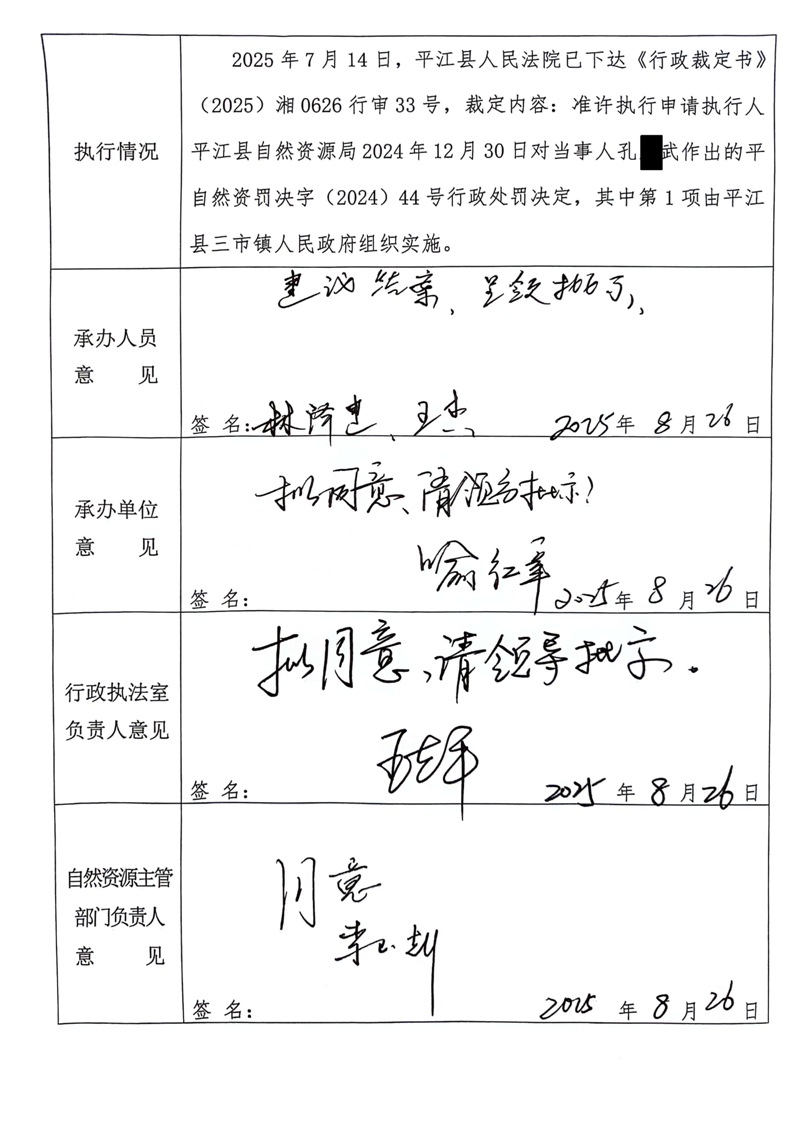 执行情况
2025 年 7 月 14 日，平江县人民法院已下达《行政裁定书》
（2025）湘 0626 行审 33 号，裁定内容：准许执行申请执行人
平江县自然资源局 2024 年 12 月 30 日对当事人孔 武作出的平
自然资罚决字（2024）44 号行政处罚决定，其中第 1 项由平江
县三市镇人民政府组织实施。
承办人员
意 见
建议结案、呈领批示、
签 名：林泽建、王杰 2025年 8 月 26 日
承办单位
意 见
拟同意、请领导批示！
喻红军
签 名： 2025年 8 月 26 日
行政执法室
负责人意见
拟同意，请领导批示．
签 名： 2025 年 8 月 26 日
自然资源主管
部门负责人
意 见
同意
签 名： 2025 年 8 月 26 日